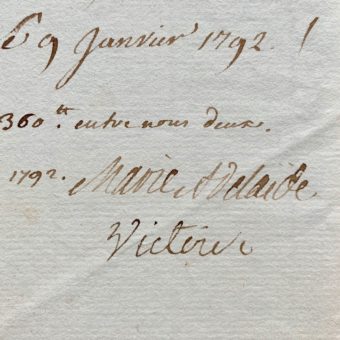 le 9 Janvier 1792.
360.tt entre nous deux.
1792. Marie Adelaide
Victoire